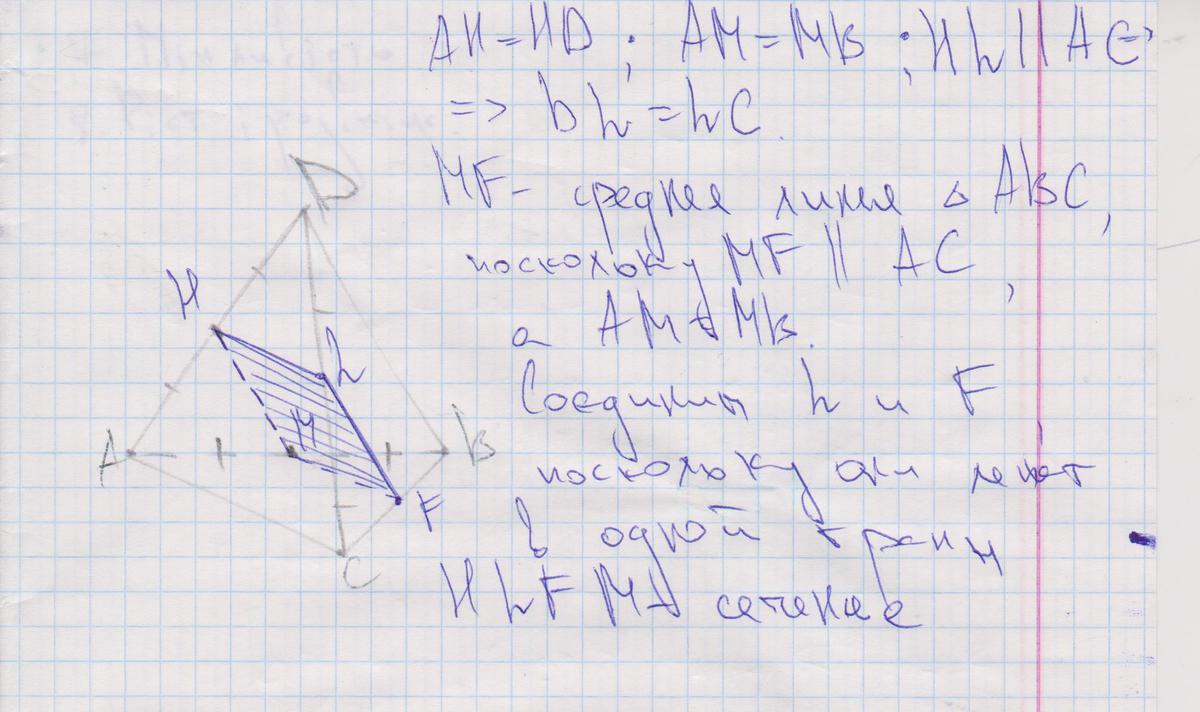 AH=HD ; AM=MB ; HL || AC =>
=> DL = LC.
MF - средняя линия △ ABC,
поскольку MF || AC,
а AM = MB.
Соединим L и F
поскольку они лежат
в одной грани
HLFM сечение
D
H
L
M
A
B
F
C